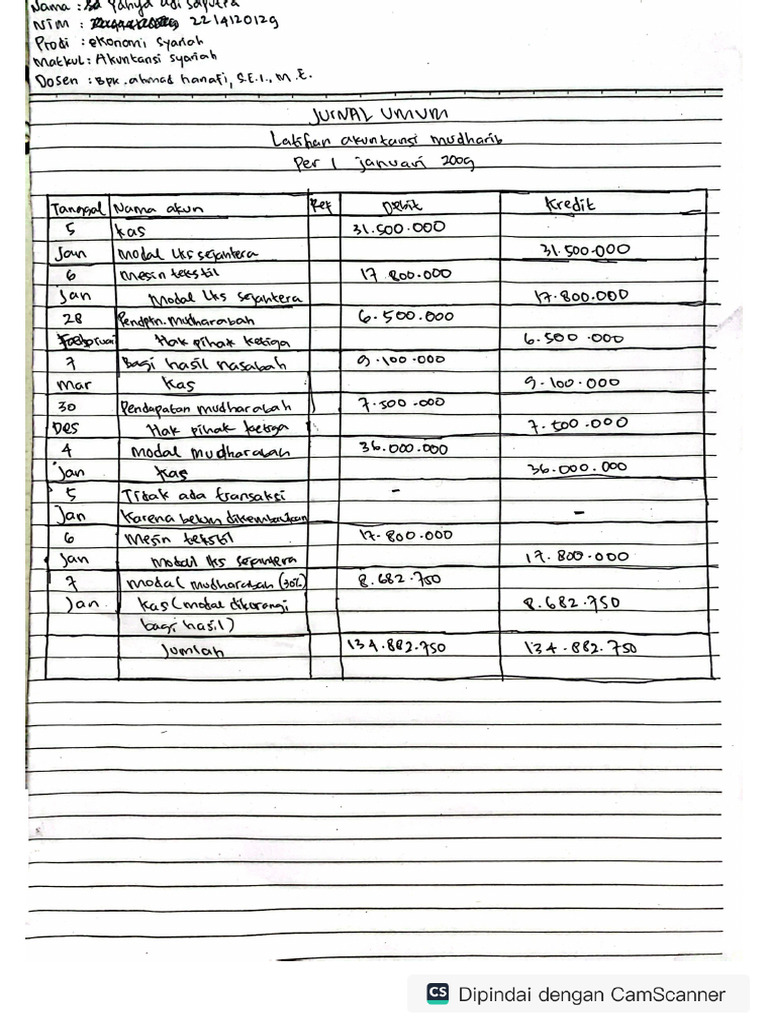 Nama : Yahya adi saputra
NIM : 2214120129
Prodi : ekonomi syariah
Matkul : Akuntansi syariah
Dosen : Bpk. ahmad hanafi, S.E.I., M.E.
JURNAL UMUM
Latihan akuntansi mudharib
Per 1 januari 2009
Tanggal Nama akun Ref Debit Kredit
5 Kas 31.500.000
Jan Modal lks sejahtera 31.500.000
6 Mesin tekstil 17.800.000
Jan Modal lks sejahtera 17.800.000
28 Pendptn. Mudharabah 6.500.000
Februari Hak pihak ketiga 6.500.000
7 Bagi hasil nasabah 9.100.000
Mar Kas 9.100.000
30 Pendapatan mudharabah 7.500.000
Des Hak pihak ketiga 7.500.000
4 Modal mudharabah 36.000.000
Jan Kas 36.000.000
5 Tidak ada transaksi -
Jan Karena belum -
6 Mesin tekstil 17.800.000
Jan modal lks sejahtera 17.800.000
7 modal mudharabah (30%) 8.682.750
Jan Kas (modal dikurangi 8.682.750
bagi hasil)
Jumlah 134.882.750 134.882.750
CS Dipindai dengan CamScanner